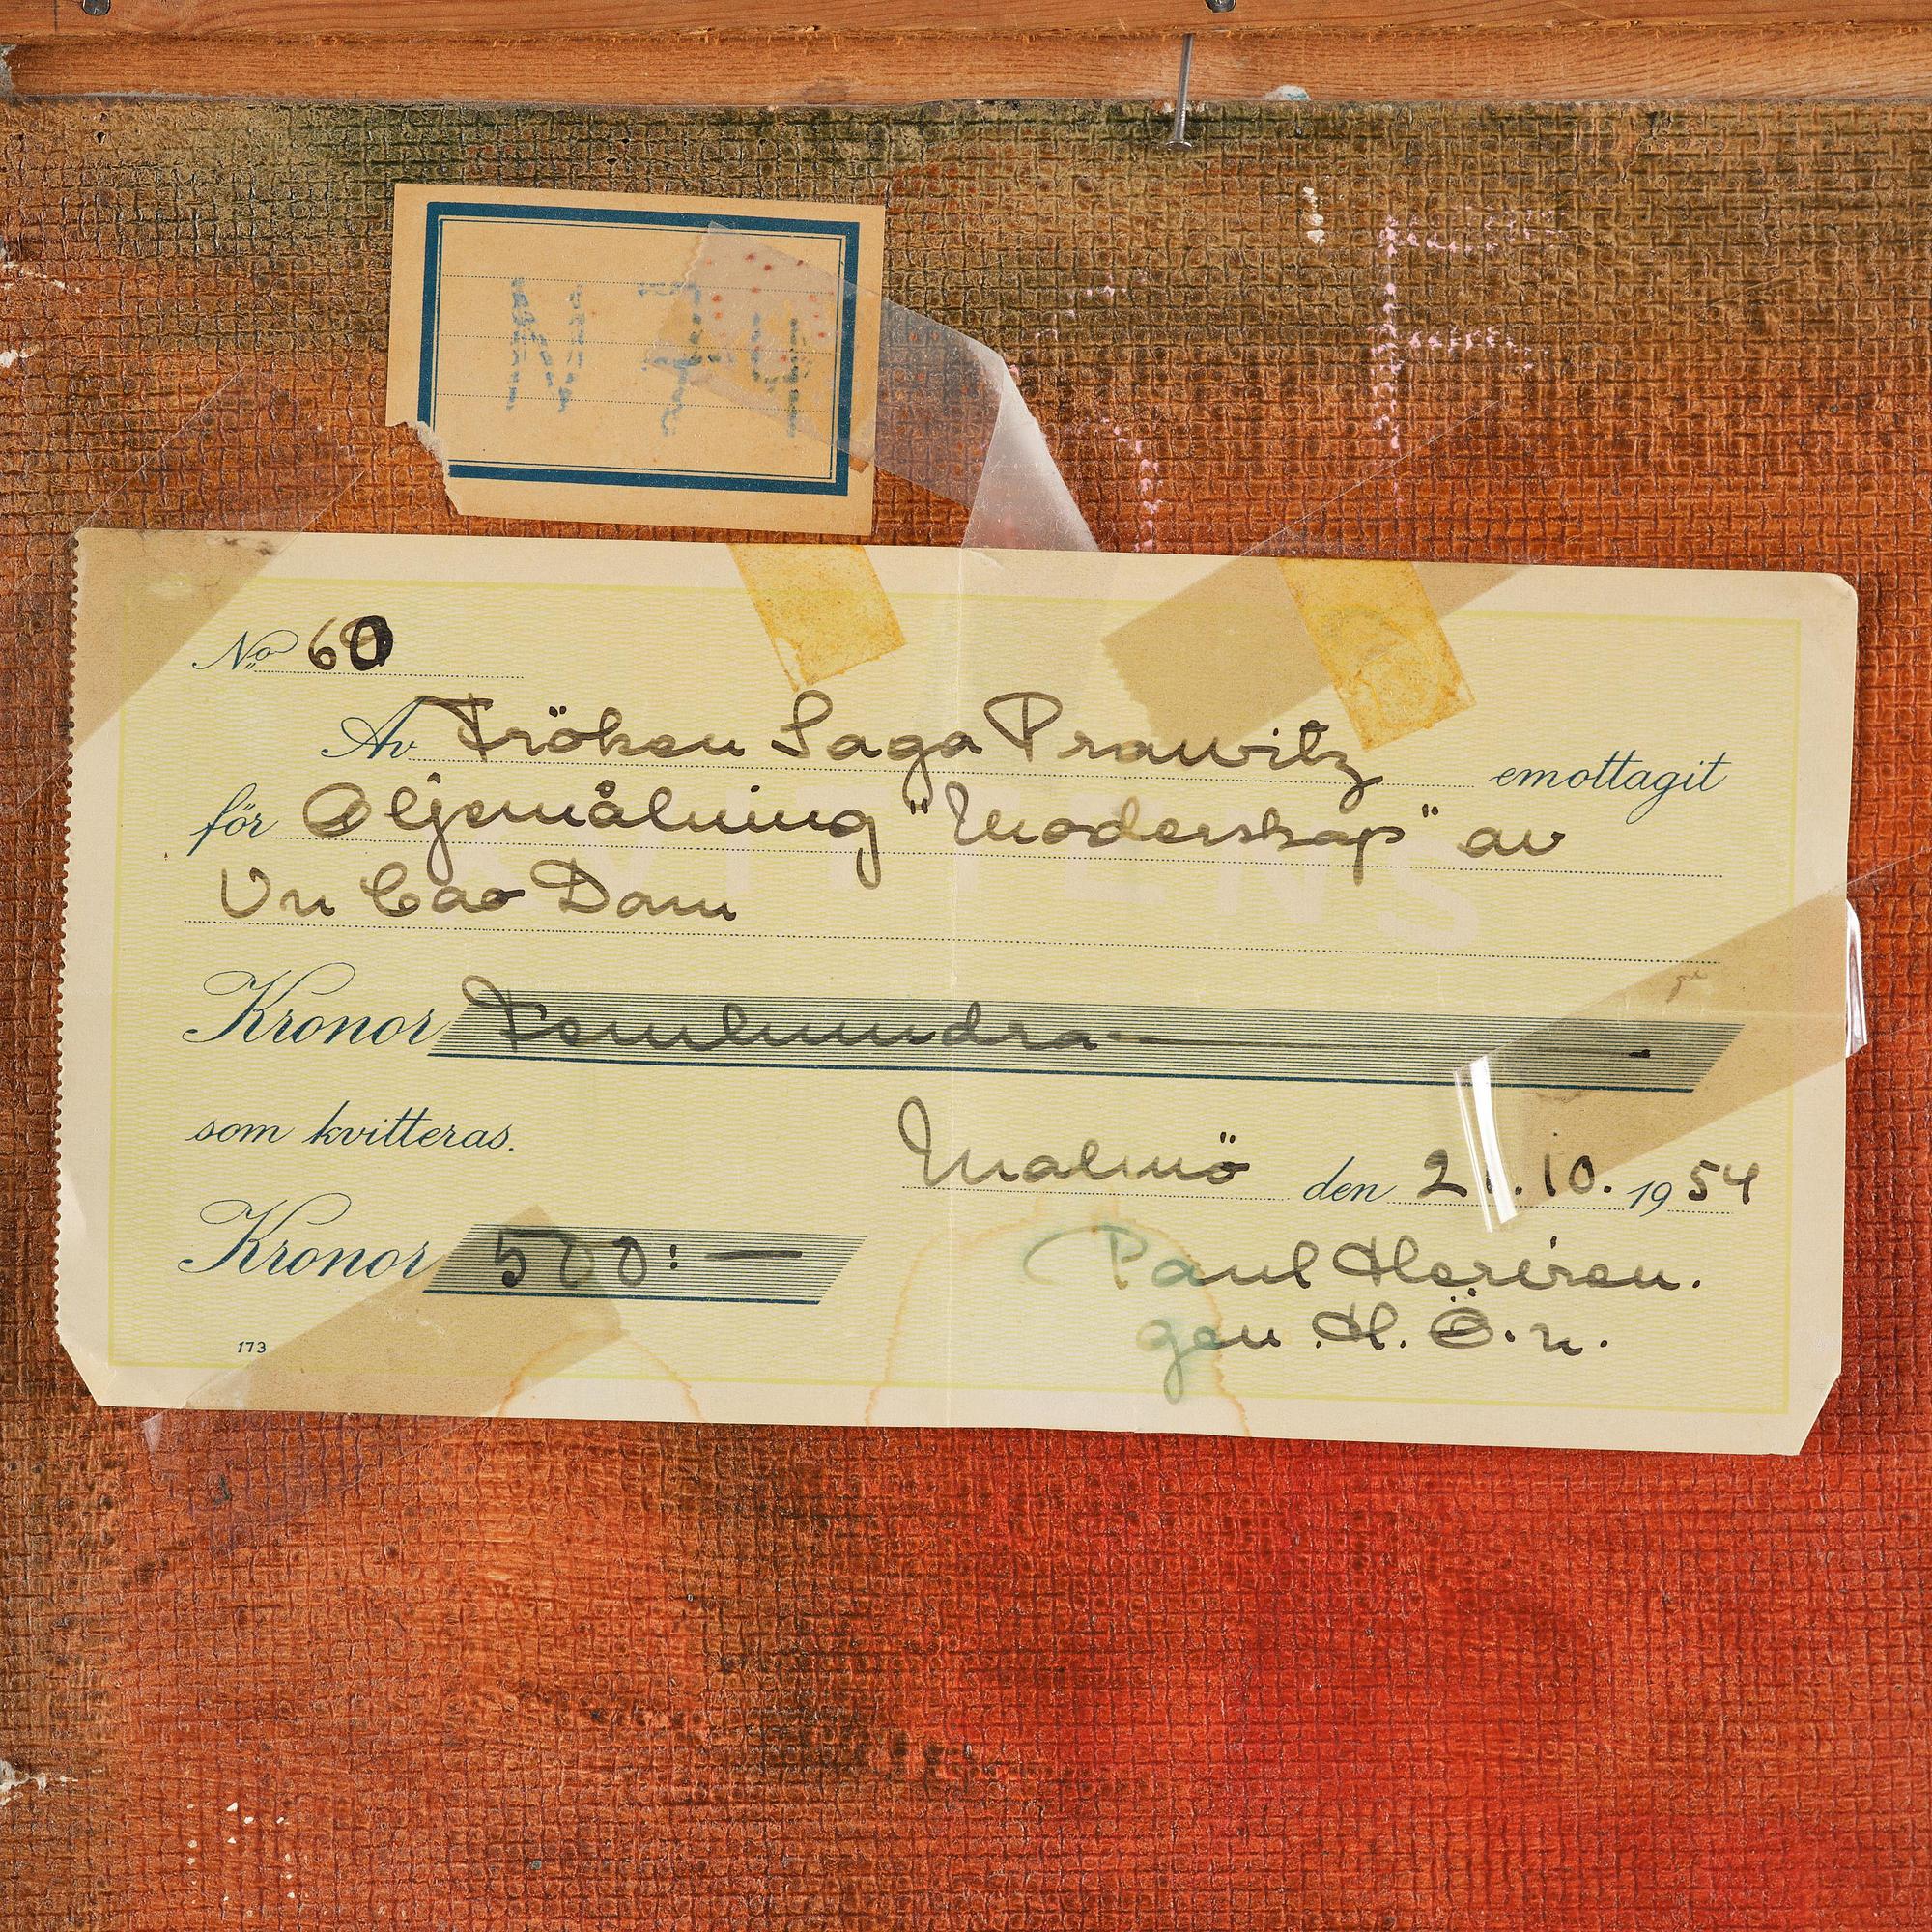 No 60
Av Fröken Saga Prawitz emottagit
för Oljemålning "Moderskap" av
Vu Cao Dam
KVITTENS
Kronor Femhundra
som kvitteras.
Malmö den 21.10.1954
Kronor 500:—
Paul
gen H. Ö.n.
173